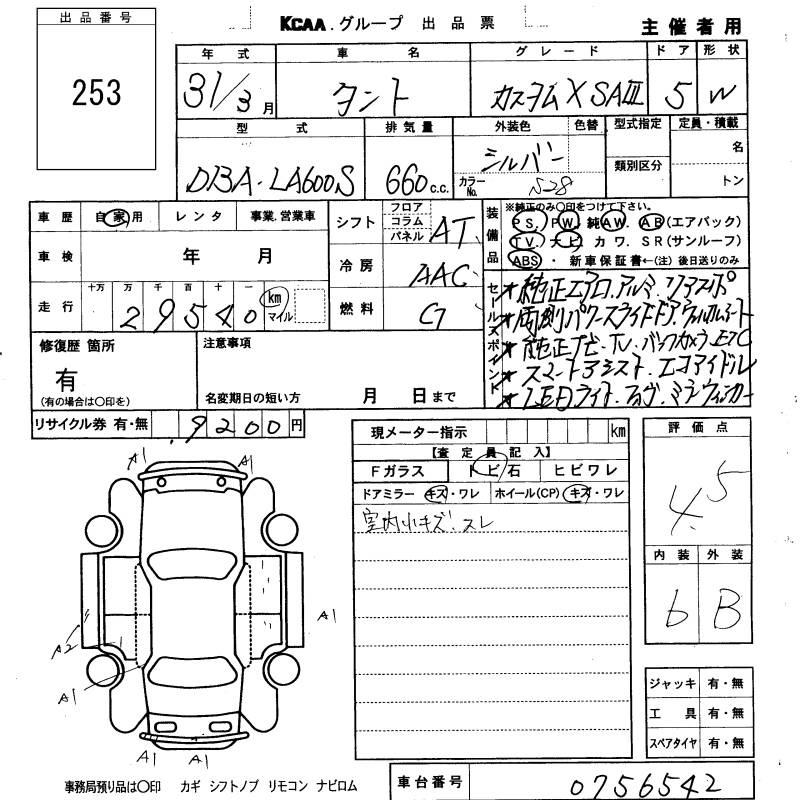 出品番号
253
KCAA.グループ 出品票
主催者用
年式 車名 グレード ドア 形状
31/3月 タント カスタムXSAⅢ 5 W
型式 排気量 外装色 色替 型式指定 定員・積載
DBA-LA600S 660c.c. シルバー カラーNo. S28 類別区分 名 トン
車歴 自家用 レンタ 事業.営業車
シフト フロア コラム パネル AT
装備品 ※純正のみ〇印をつけて下さい。
PS. PW. 純AW. AB(エアバック)
TV. ナビ カワ. SR(サンルーフ)
ABS ・ 新車保証書←(注) 後日送りのみ
車検 年 月
冷房 AAC
走行 十万 万 千 百 十 一 29540 km マイル
燃料 G
セールスポイント
★純正エアロ.アルミ.リアスポ
★両側パワースライドドア.ウェルカムシート
★純正ナビ.TV.バックカメラ.ETC
★スマートアシスト.エコアイドル
★LEDライト.フォグ.ミラーウィンカー
修復歴 箇所
有
(有の場合は〇印を)
注意事項
名変期日の短い方 月 日まで
リサイクル券 有・無 9200円
現メーター指示 km
【査定員記入】
Fガラス トビ石 ヒビワレ
ドアミラー キズ・ワレ ホイール(CP) キズ・ワレ
室内小キズ.スレ
評価点
4.5
内装 外装
6 B
A1 A1
A1
A2
A1
A1 A1
ジャッキ 有・無
工具 有・無
スペアタイヤ 有・無
事務局預り品は〇印 カギ シフトノブ リモコン ナビロム
車台番号 0756542